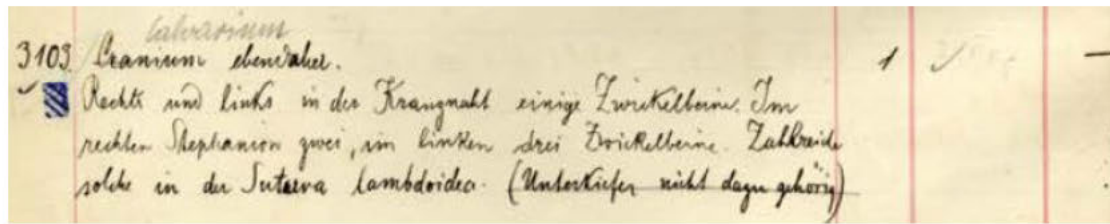 Calvarium
3103. Cranium ebendaher. 1 —
Rechts und links in der Kranznaht einige Zwickelbeine. Im
rechten Stephanion zwei, im linken drei Zwickelbeine. Zahlreiche
solche in der Sutura lambdoidea. (Unterkiefer nicht dazu gehörig)